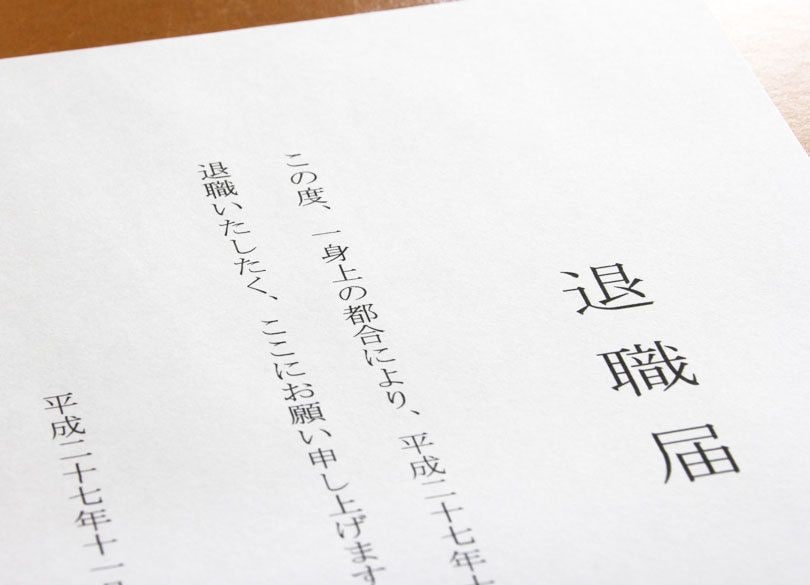 退職届
この度、一身上の都合により、平成二十七年十
退職いたしたく、ここにお願い申し上げます
平成二十七年十一月